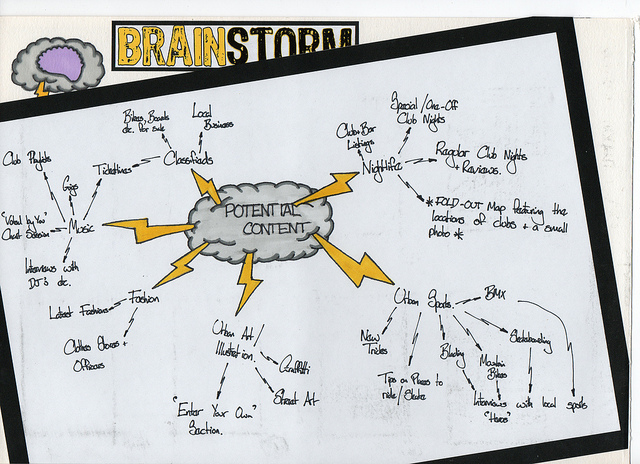 BRAINSTORM
POTENTIAL
CONTENT
Classifieds
Bikes, Boards
etc. for sale
Local
Business
Music
Club Playlists
Gigs
Ticketlines
"Voted by You"
Chart
Interviews with
DJ's etc.
Fashion
Latest Fashions
Clothes Stores +
Offices
Urban Art/
Illustration.
Graffiti
Street Art
"Enter Your Own"
Section.
Nightlife
Club + Bar
Listings
Special / One-Off
Club Nights
Regular Club Nights
+ Reviews.
* FOLD-OUT Map featuring the
locations of clubs + a small
photo *
Urban Sports.
BMX
Skateboarding
Mountain
Bikes
Blading
New
Tricks
Tips on Places to
ride / Skate
Interviews with local spots
"Heroes"